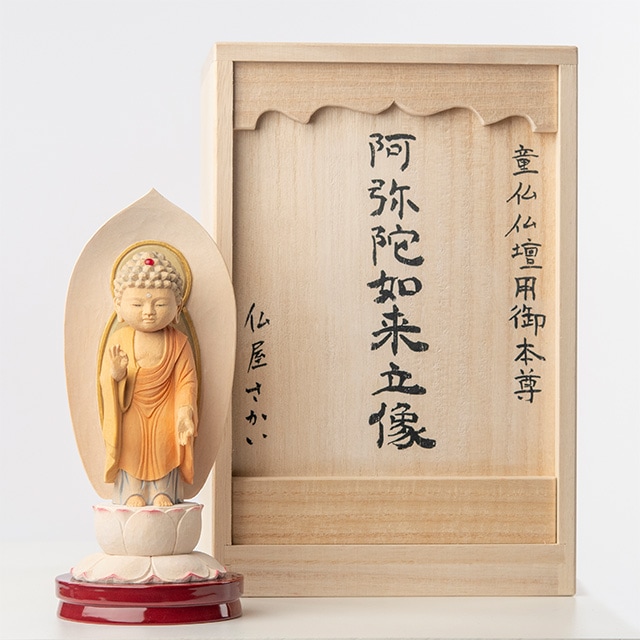 童仏仏壇用御本尊
阿弥陀如来立像
仏屋さかい